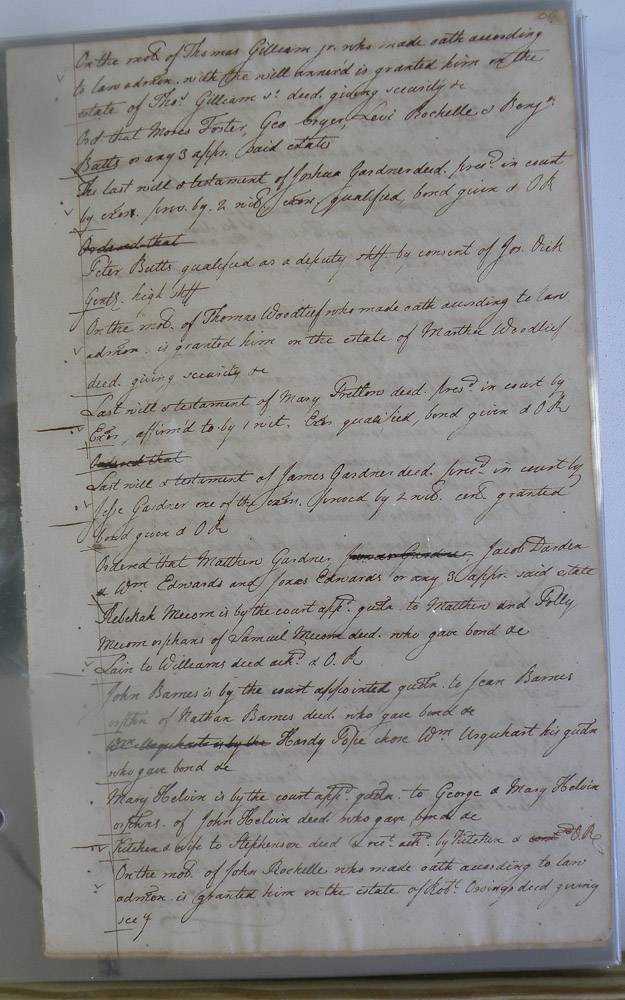 On the mot. of Thomas Gilliam jr. who made oath according
to law admōn. with the will annex'd is granted him on the
estate of Thos. Gilliam sr. deed. giving security &c
Ord that Moses Foster, Geo. Cryer, Levi Rochelle & Benjn.
Batts or any 3 appr. said estate
The last will & testament of Joshua Gardner deed. presd. in court
by exōrs. prov. by 2 wits. exōrs. qualified, bond given & OR
Ordered that
Peter Butts qualified as a deputy shff by consent of Jos. Dick
Gentn. high shff
On the mot. of Thomas Woodlief who made oath according to law
admōn. is granted him on the estate of Martha Woodlief
deed. giving security &c
Last will & testament of Mary Fretton deed. presd. in court by
Exōr, affirm'd to by 1 wit. Exōr. qualified, bond given & OR
Ordered that
Last will & testament of James Gardner deed. presd. in court by
Jesse Gardner one of the exōrs. proved by 2 wits. cert. granted
bond given & OR
Ordend that Matthew Gardner James Gardner, Jacob Darden
& Wm. Edwards and Jonas Edwards or any 3 appr. said estate
Rebekah Mecom is by the court appd. guđn. to Matthew and Polly
Mecom orphans of Samuel Mecom deed. who gave bond &c
Lain to Williams deed ackd. & O.R
John Barnes is by the court appointed guđn. to Jean Barnes
orphn of Nathan Barnes deed. who gave bond &c
Wm. Urquhart is by the Hardy Pope chose Wm Urquhart his guđn
who gave bond &c
Mary Helvin is by the court appd. guđn. to George & Mary Helvin
orphns. of John Helvin deed who gave bond &c
Kitchen & wife to Stephenson deed & rect. ackd. by Kitchen & O.R.
On the mot. of John Rochelle who made oath according to law
admōn. is granted him on the estate of Robt. Owings deed giving
sec y